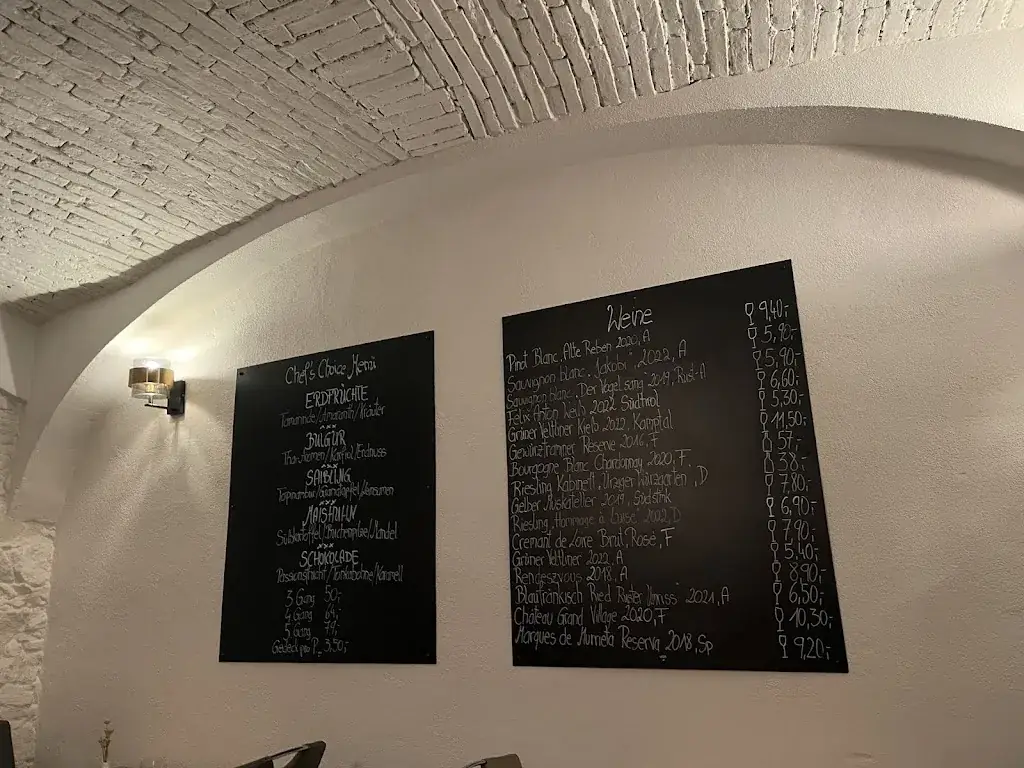 Chef's Choice Menü
ERDFRÜCHTE
Tamarinde/Amaranth/Kräuter
***
BULGUR
/Erdnuss
***
SAIBLING
Topinambur/
***
MAISHUHN
Süßkartoffel/ /Mandel
***
SCHOKOLADE
Passionsfrucht/Tonkabohne/Karamell
3 Gang 50,-
4 Gang
5 Gang
Gedeck pro P. 3,50,-
Weine
Pinot Blanc, Alte Reben 2020, A 9,40,-
Sauvignon blanc, "Jakobi", 2022, A 5,90,-
Sauvignon blanc, Der Vogelsang 2019, Rust-A 5,90,-
Felix Anton Keið 2022 Südtirol 6,60,-
Grüner Veltliner 2022, Kamptal 5,30,-
Gewürztraminer Reserve 2016, F 11,50,-
Bourgogne Blanc Chardonnay 2020, F 57,-
Riesling Kabinett, Ürziger Würzgarten, D 38,-
Gelber Muskateller 2019, Südstmk 7,80,-
Riesling "Hommage à Luise" 2022 D 6,90,-
Cremant de Loire Brut, Rosé, F 7,90,-
Grüner Veltliner 2022, A 5,40,-
Rendezvous 2018, A 8,90,-
Blaufränkisch Ried 2021, A 6,50,-
Château Grand Village 2020, F 10,30,-
Marques de Murrieta Reserva 2018, Sp 9,20,-